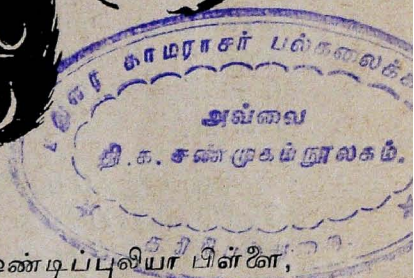 காமராசர் பல்கலைக்
அவ்வை
தி.க. சண்முகம் நூலகம்.
ண்டிப்புலியா பிள்ளை,